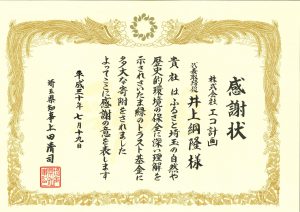 感謝状
株式会社 エコ計画
代表取締役 井上綱隆様
貴社はふるさと埼玉の自然や
歴史的環境の保全に深い理解を
示されさいたま緑のトラスト基金に
多大な寄附をされました
よってここに感謝の意を表します
平成三十年七月十九日
埼玉県知事 上田清司